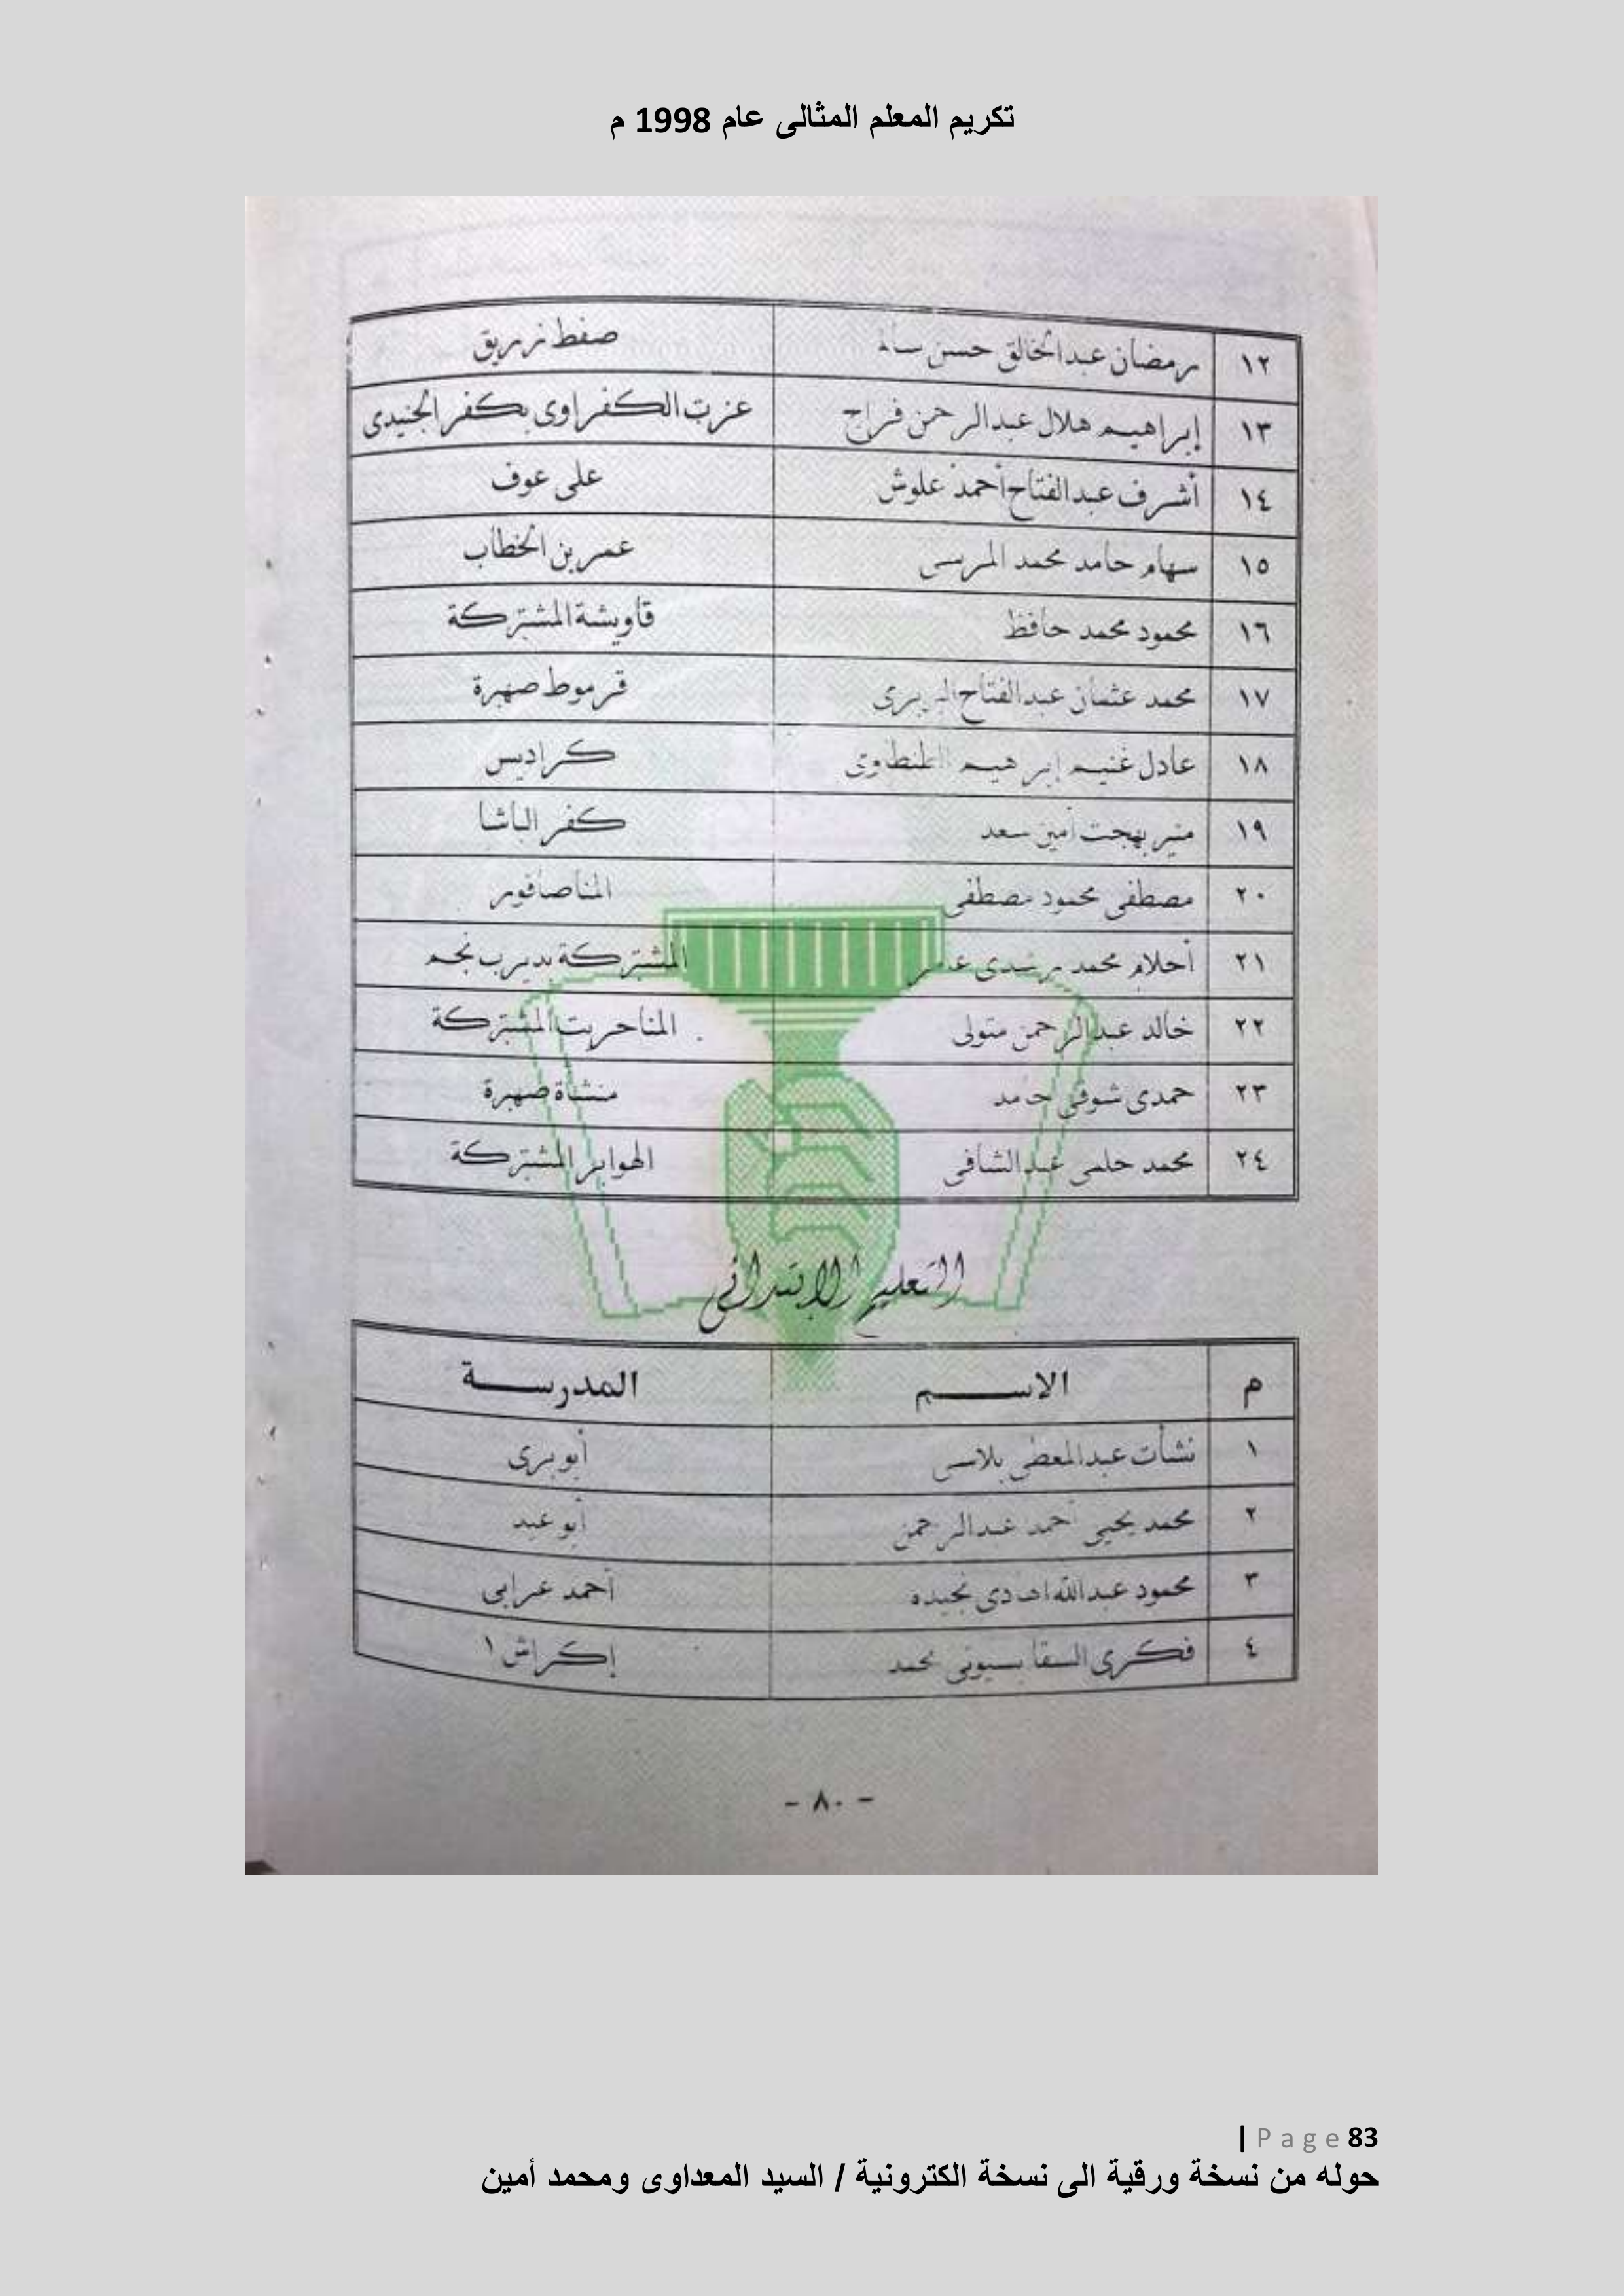 تكريم المعلم المثالى عام 1998 م
١٢ رمضان عبدالخالق حسن صفط زريق
١٣ إبراهيم هلال عبدالرحمن فراج عزبة الكفراوى بكفر الجنيدى
١٤ أشرف عبدالفتاح أحمد علوش على عوف
١٥ سهام حامد محمد المرسى عمر بن الخطاب
١٦ محمود محمد حافظ قاويشة المشتركة
١٧ محمد عثمان عبدالفتاح قرموط صهبرة
١٨ عادل غنيم إبراهيم الطنطاوى كراديس
١٩ منير بهجت أمين سعد كفر الباشا
٢٠ مصطفى محمود مصطفى المناصافور
٢١ أحلام محمد رشدى المشتركة بديرب نجم
٢٢ خالد عبدالرحمن متولى المناحريت المشتركة
٢٣ حمدى شوقى حامد منشاة صهبرة
٢٤ محمد حلمى عبدالشافى الهوابر المشتركة
التعليم الابتدائى
م الاسم المدرسة
١ نشأت عبدالمعطى بلاسى أبو برى
٢ محمد يحيى أحمد عبدالرحمن أبو عيد
٣ محمود عبدالله نجيده أحمد عرابى
٤ فكرى السقا بسيونى محمد إكراش ١
- ٨٠ -
| Page 83
حوله من نسخة ورقية الى نسخة الكترونية / السيد المعداوى ومحمد أمين